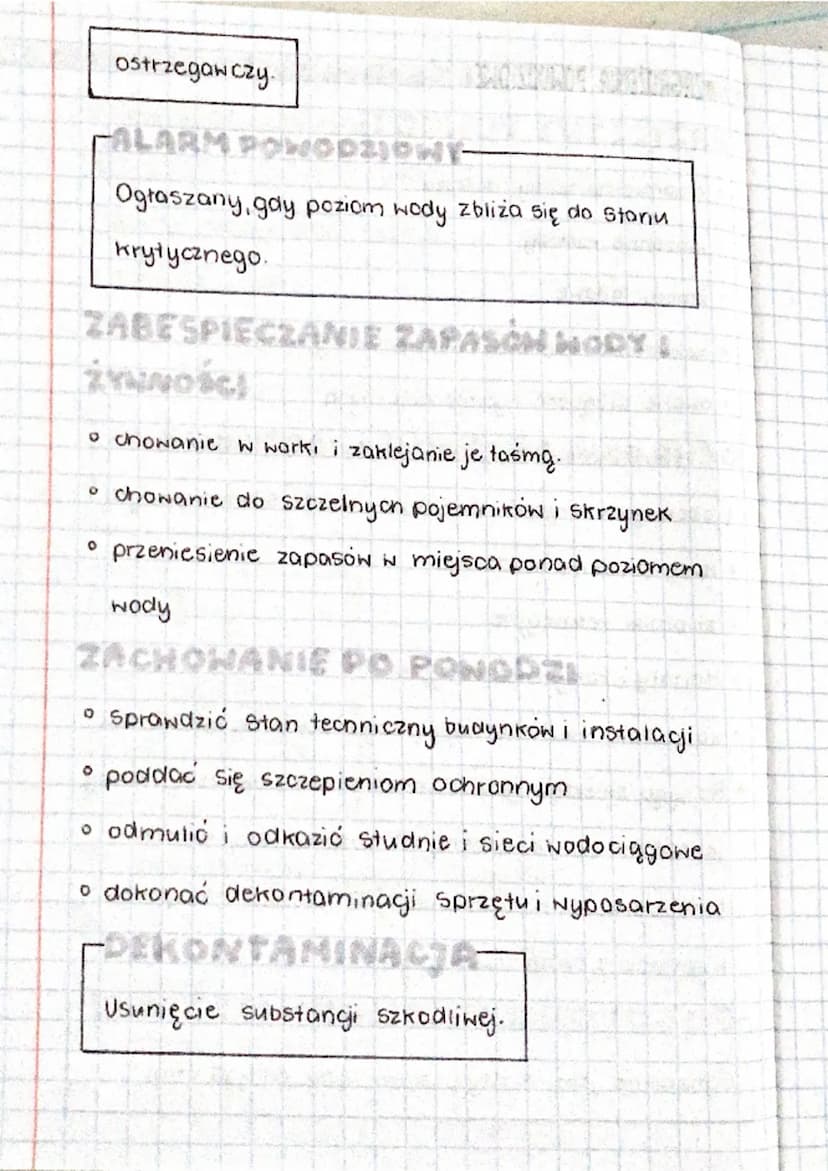 ostrzegawczy.
ALARM POWODZIOWY
Ogłaszany, gdy poziom wody zbliża się do stanu
krytycznego.
ZABESPIECZANIE ZAPASÓW WODY I
ŻYWNOŚCI
o chowanie w worki i zaklejanie je taśmą.
o chowanie do szczelnych pojemników i skrzynek
o przeniesienie zapasów w miejsca ponad poziomem
wody
ZACHOWANIE PO POWODZI
o sprawdzić stan techniczny budynków i instalacji
o poddać się szczepieniom ochronnym
o odmulić i odkazić studnie i sieci wodociągowe
o dokonać dekontaminacji sprzętu i wyposarzenia
DEKONTAMINACJA
Usunięcie substancji szkodliwej.